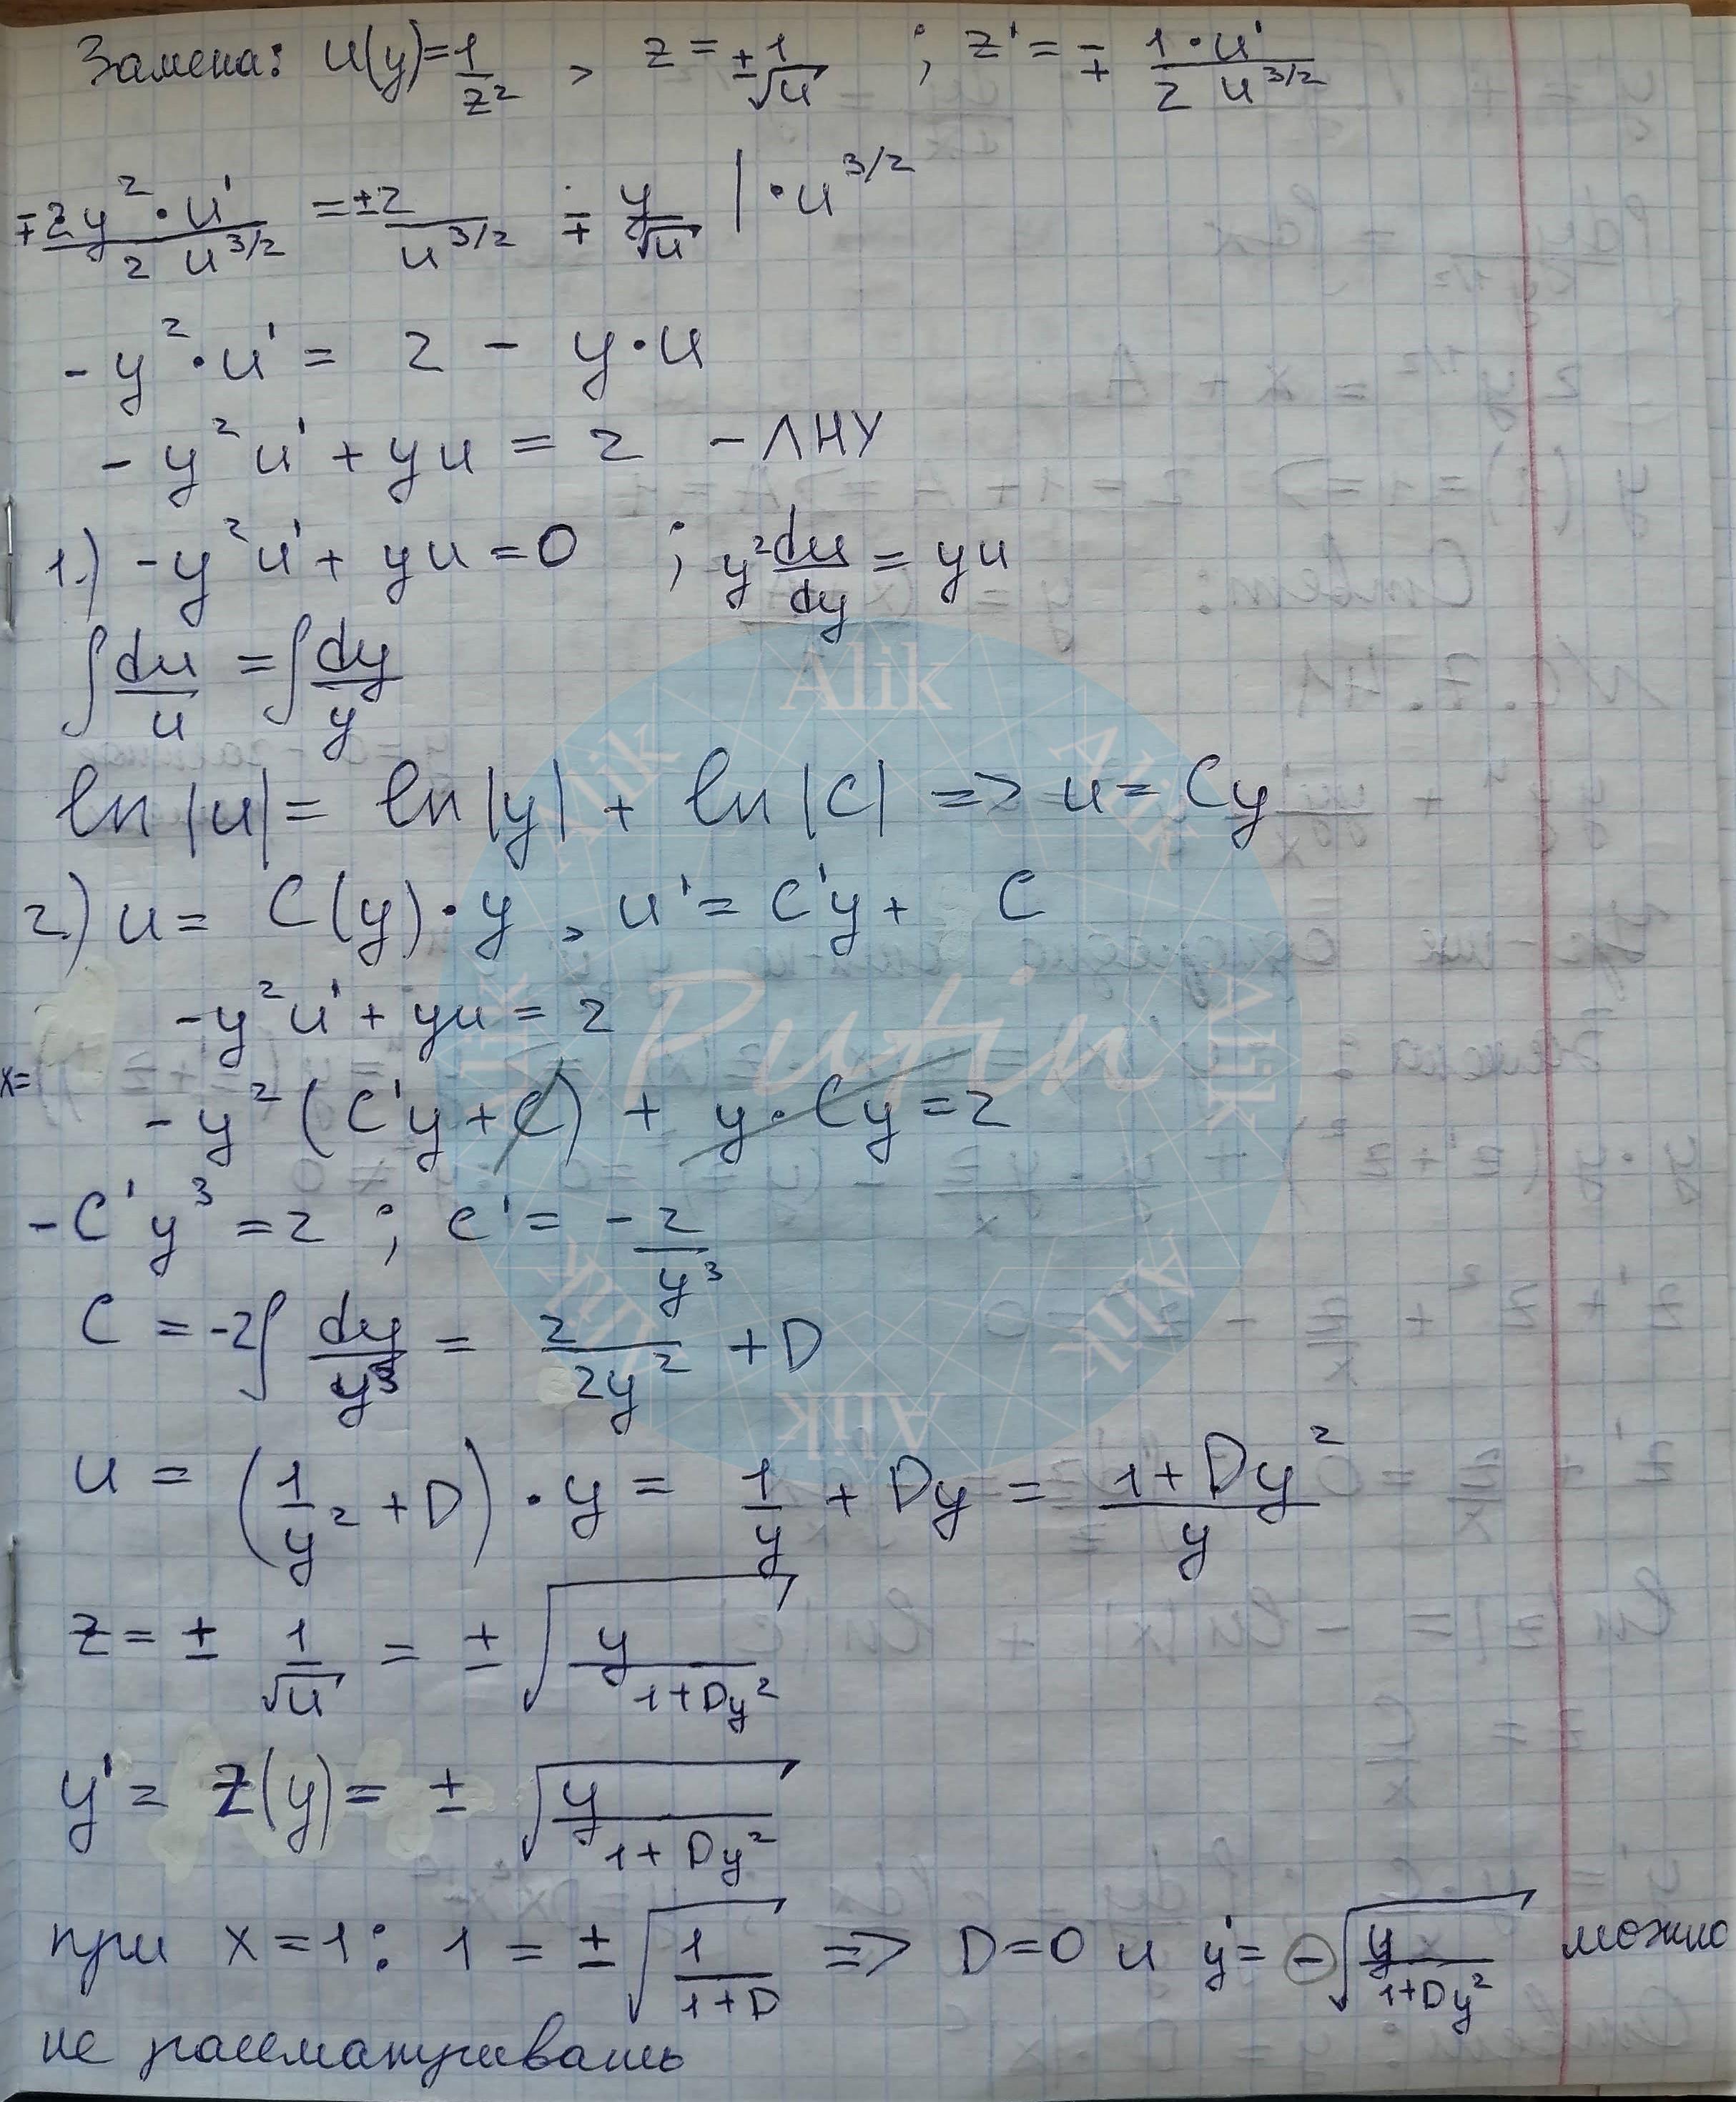 Замена: u(y)=1/z², z=±1/√u ; z'=∓ 1·u'/2 u^3/2
∓2y²·u'/2 u^3/2 = ±2/u^3/2 ∓ y/√u |·u^3/2
-y²·u' = 2 - y·u
-y²u' + yu = 2 - ЛНУ
1.) -y²u' + yu = 0 ; y² du/dy = yu
∫du/u = ∫dy/y
ln|u| = ln|y| + ln|C| => u = Cy
2.) u = C(y)·y, u' = C'y + C
-y²u' + yu = 2
x=
-y²(C'y + C) + y·Cy = 2
-C'y³ = 2 ; C' = -2/y³
C = -2∫dy/y³ = 2/2y² + D
u = (1/y² + D)·y = 1/y + Dy = 1+Dy²/y
z = ± 1/√u = ±√y/1+Dy²
y' = z(y) = ±√y/1+Dy²
при x=1: 1 = ±√1/1+D => D=0 и y' = -√y/1+Dy² можно
не рассматривать
Alik
Alik
Alik
Alik
Alik
Alik
Alik
Alik
Putin